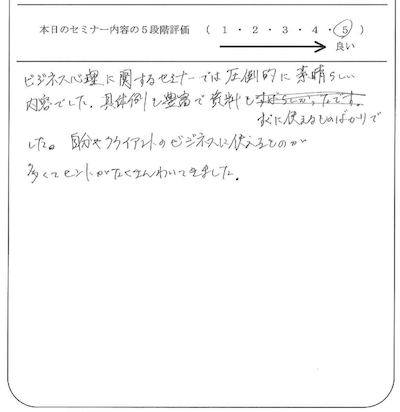 本日のセミナー内容の５段階評価 （ １ ・ ２ ・ ３ ・ ４ ・ ５ ）
良い
ビジネス心理に関するセミナーでは圧倒的に素晴らしい
内容でした。具体例も豊富で資料もすばらしかったです。
すぐに使えるものばかりで
した。自分やクライアントのビジネスに使えるものが
多くてヒントがたくさんわいてきました。